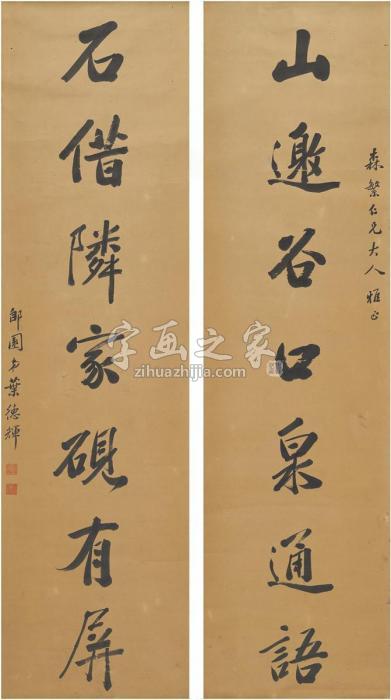 森繁仁兄大人雅正
山邀谷口泉通語
石借隣家硯有屏
郋園弟葉德輝
字画之家
zihuazhijia.com